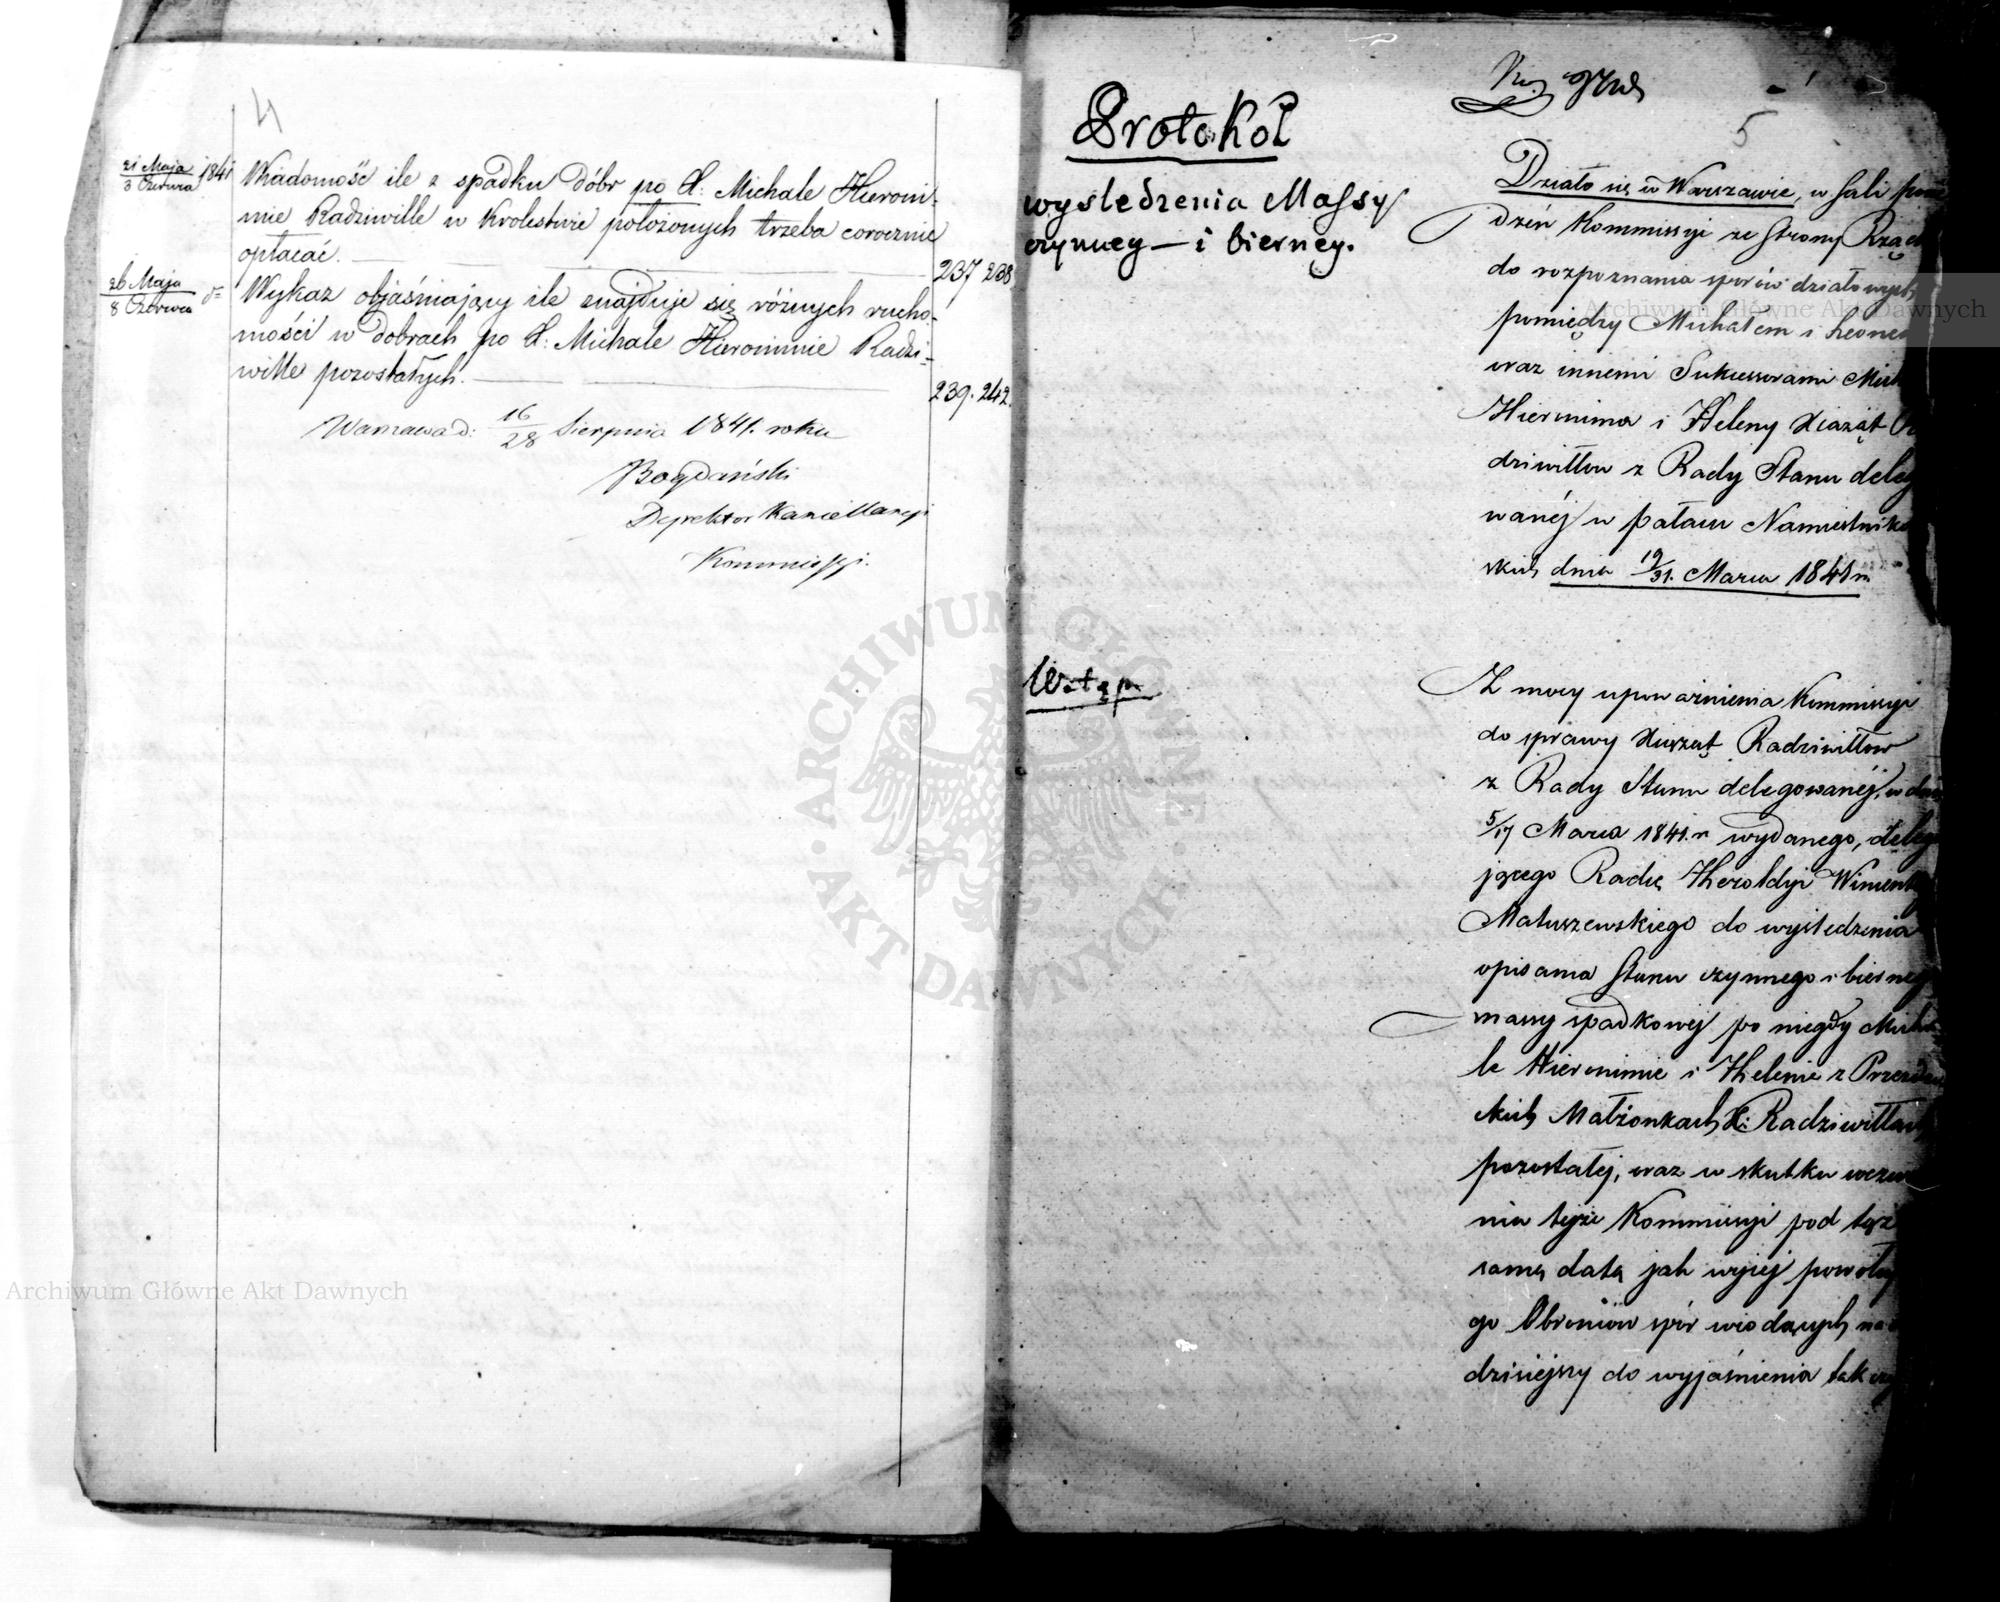 4
21 Maja
3 Czerwca 1841
Wiadomość ile z spadku dóbr po X: Michale Hieroni-
mie Radziwille w Krolestwie położonych trzeba corocznie
opłacać. 237 238
26 Maja
8 Czerwca
Wykaz objaśniający ile znajduje się różnych rucho-
mości w dobrach po X: Michale Hieronimie Radzi-
wille pozostałych. 239. 242.
Warszawa d: 16/28 Sierpnia 1841. roku
Bogdański
Dyrektor Kancellaryi
Kommissyi.
Protokół
wysledzenia Massy
czynney – i bierney.
5
Działo się w Warszawie, w Sali
dzeń Kommissyi ze strony
do rozpoznania sporów działowych
pomiędzy Michałem i
oraz innemi Sukcessorami
Hieronima i Heleny Xiążąt
dziwiłłów z Rady Stanu
wanéj w pałacu
skich dnia 19/31. Marca 1841 r.
Wstęp
Z mocy upoważnienia Kommissyi
do sprawy Xiążąt Radziwiłłow
z Rady Stanu delegowanéj, w
5/17 Marca 1841. r wydanego,
jącego Radcę Heroldyi
Matuszewskiego do wyśledzenia
opisania Stanu czynnego i
massy spadkowej po niegdy
le Hieronimie i Helenie z
skich Małżonkach X: Radziwiłłach
pozostałej, oraz w skutku
nia tejże Kommissyi pod
samą datą jak wyżej
go Obrońców spór wiodących
dzisiejszy do wyjaśnienia tak
Archiwum Główne Akt Dawnych
ARCHIWUM GŁÓWNE · AKT DAWNYCH ·
Archiwum Główne Akt Dawnych